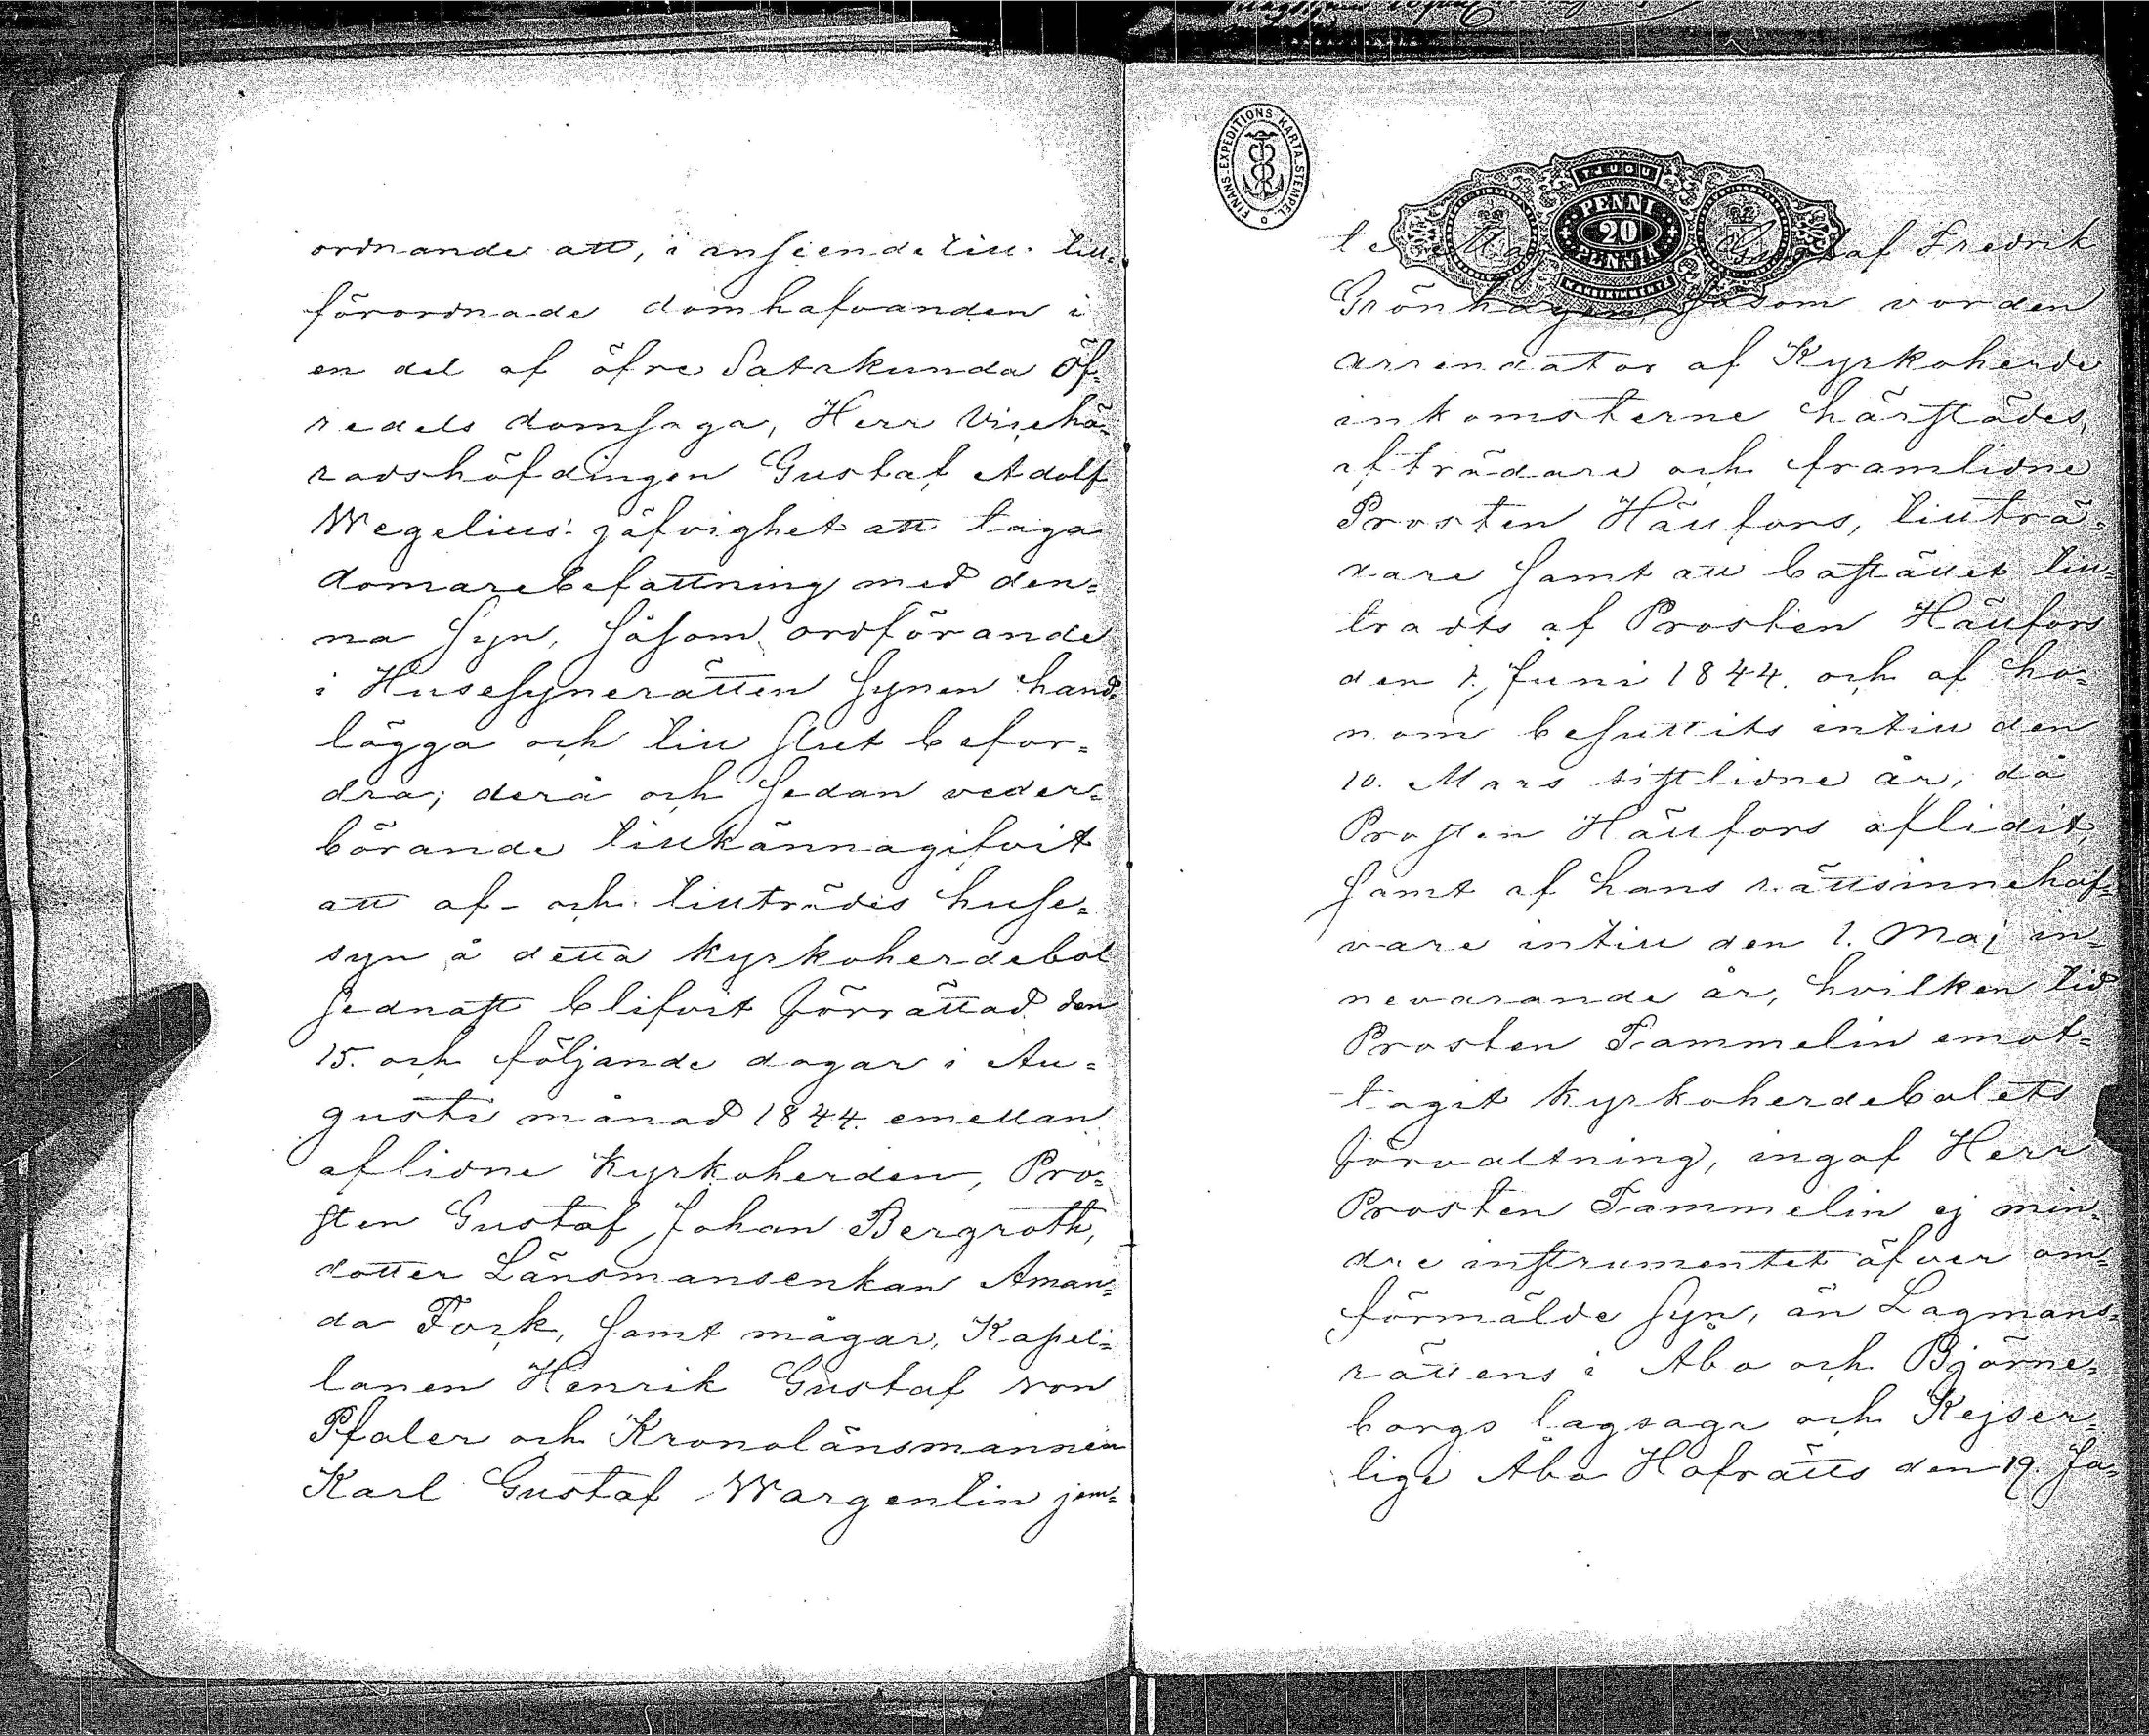 ordnande att, i anseende till till=
förordnade domhafvanden i
en del af öfre Satakunda Öf=
redels domsaga, Herr Vicehä=
radshöfdingen Gustaf Adolf
Wegelius' jäfvighet att taga
domarebefattning med den=
na syn, såsom ordförande
i Husesynerätten synen hand=
lägga och till slut befor=
dra; derå och sedan veder=
börande tillkännagifvit
att af- och tillträdes huse=
syn å detta kyrkoherdebol
sednast blifvit förrättad den
15. och följande dagar i Au=
gusti månad 1844. emellan
aflidne Kyrkoherden, Pro=
sten Gustaf Johan Bergroth,
dotter Länsmansenkan Aman=
da Fork, samt mågar, Kapel=
lanen Henrik Gustaf von
Pfaler och Kronolänsmannen
Karl Gustaf Wargentin jem=
FINANS-EXPEDITIONS KARTA.STEMPEL
TJUGU
PENNI
20
PENNIÄ
KAKSIKYMMENTÄ
te Gustaf Fredrik
Grönhagen, såsom vorden
arrendator af Kyrkoherde
inkomsterne härstädes,
afträdare och framlidne
Prosten Hällfors, tillträ=
dare samt att bostället till=
trädts af Prosten Hällfors
den 1. Juni 1844. och af ho=
nom besuttits intill den
10. Mars sistlidne år, då
Prosten Hällfors aflidit,
samt af hans rättsinnehaf=
vare intill den 1. Maj in=
nevarande år, hvilken tid
Prosten Tammelin emot=
tagit kyrkoherdebolets
förvaltning, ingaf Herr
Prosten Tammelin ej min=
dre instrumentet öfver om=
förmälde syn, än Lagmans=
rättens i Åbo och Björne=
borgs lagsaga och Kejser=
lige Åbo Hofrätts den 19. Ja=